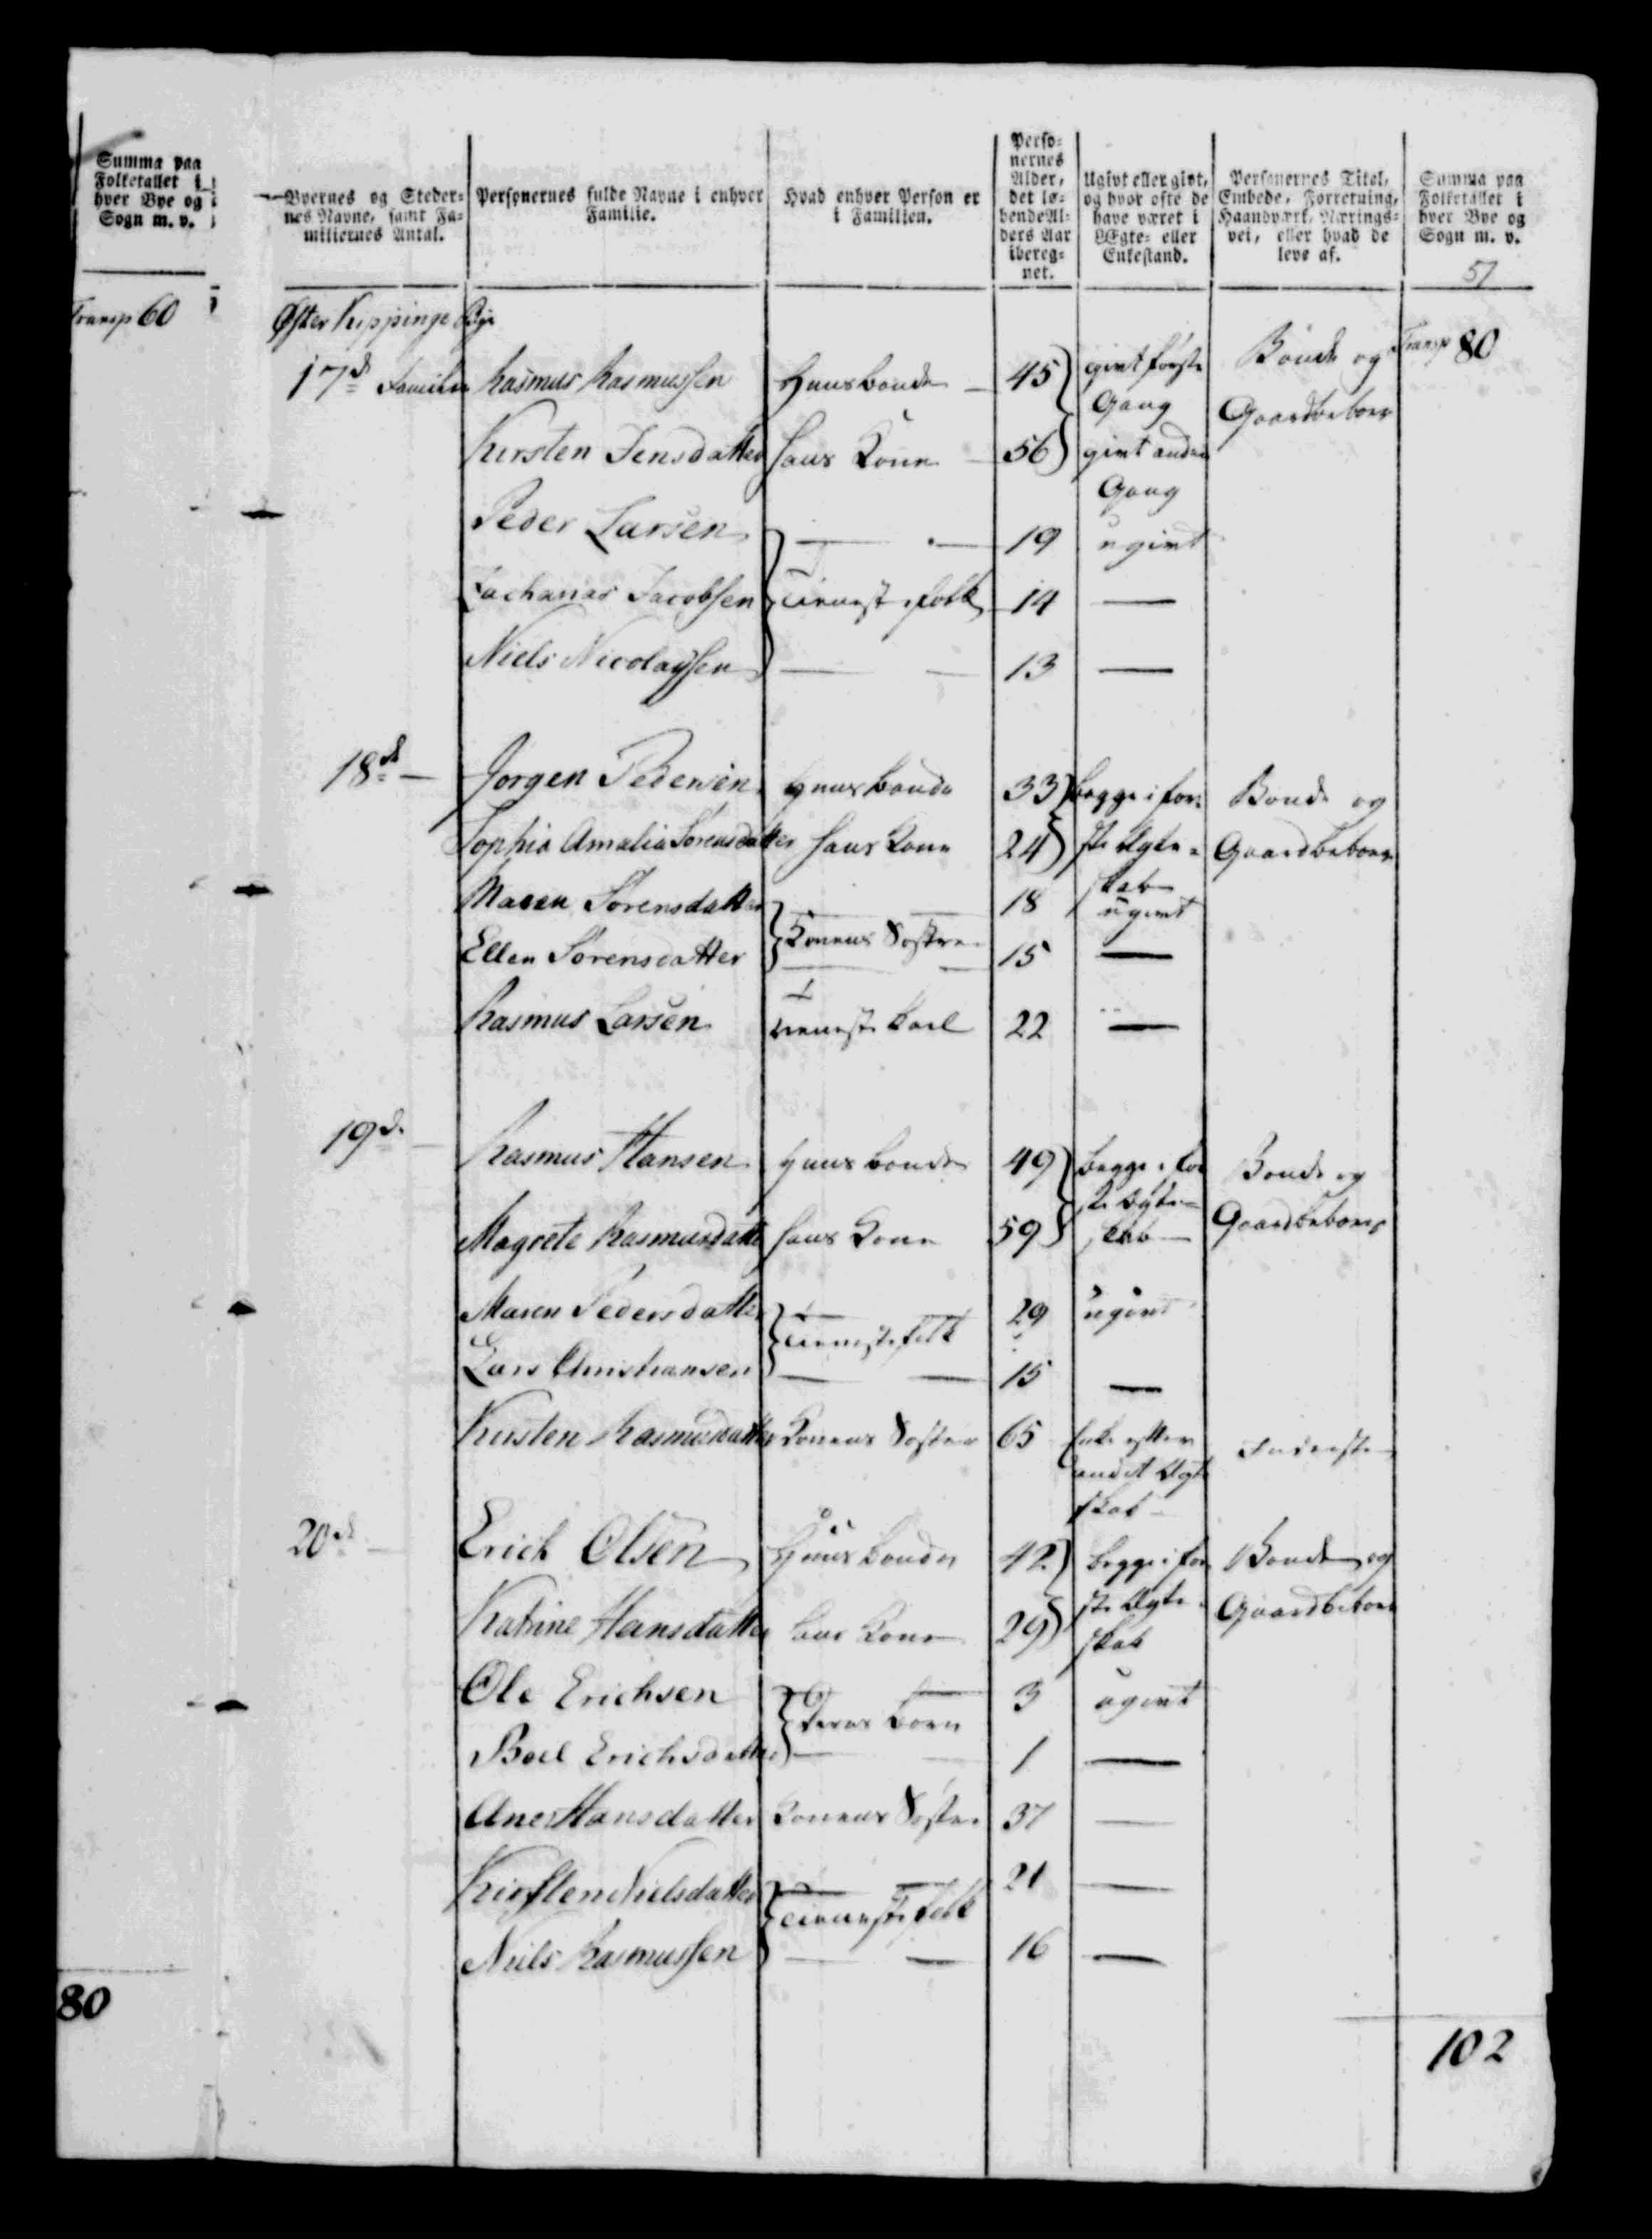 Summa paa
Folketallet i
hver Bye og
Sogn m. v.
Transp 60
80
Byernes og Steder-
nes Navne, samt Fa-
miliernes Antal.
Personernes fulde Navne i enhver
Familie.
Hvad enhver Person er
i Familien.
Perso-
nernes
Alder,
det lø-
bende Al-
ders Aar
ibereg-
net.
Ugivt eller givt,
og hvor ofte de
have været i
Ægte- eller
Enkestand.
Personernes Titel,
Embede, Forretning,
Haandværk, Nærings-
vei, eller hvad de
leve af.
Summa paa
Folketallet i
hver Bye og
Sogn m. v.
51
Øster Kippinge Bye
Transp 80
17de Familie Rasmus Rasmussen Huusbonde 45 givt første Gang Bonde og Gaardbeboer
Kirsten Jensdatter hans Kone 56 givt anden Gang
Peder Larsen 19 ugivt
Zacharias Jacobsen Tienestefolk 14 —
Niels Nicolaysen 13 —
18de — Jørgen Pedersen Huusbonde 33 begge i før- Bonde og
Sophia Amalia Sørensdatter hans Kone 24 ste Ægte- Gaardbeboer
skab
Maren Sørensdatter 18 ugivt
Konens Søstre
Ellen Sørensdatter 15 —
Rasmus Larsen Tieneste Karl 22 —
19de — Rasmus Hansen Huusbonde 49 begge i før- Bonde og
ste Ægte-
Magrete Rasmusdatter hans Kone 59 skab Gaardbeboer
Maren Pedersdatter 29 ugivt
Tienestefolk
Lars Christiansen 15 —
Kirsten Rasmusdatter Konens Søster 65 Enke efter Inderste
andet Ægte
skab
20de — Erich Olsen Huusbonde 42 begge i før Bonde og
Katrine Hansdatter hans Kone 29 ste Ægte- Gaardbeboer
skab
Ole Erichsen 3 ugivt
Deres Børn
Boel Erichsdatter 1 —
Ane Hansdatter Konens Søster 37 —
Kirsten Nielsdatter 21 —
Tienestefolk
Niels Rasmussen 16 —
102